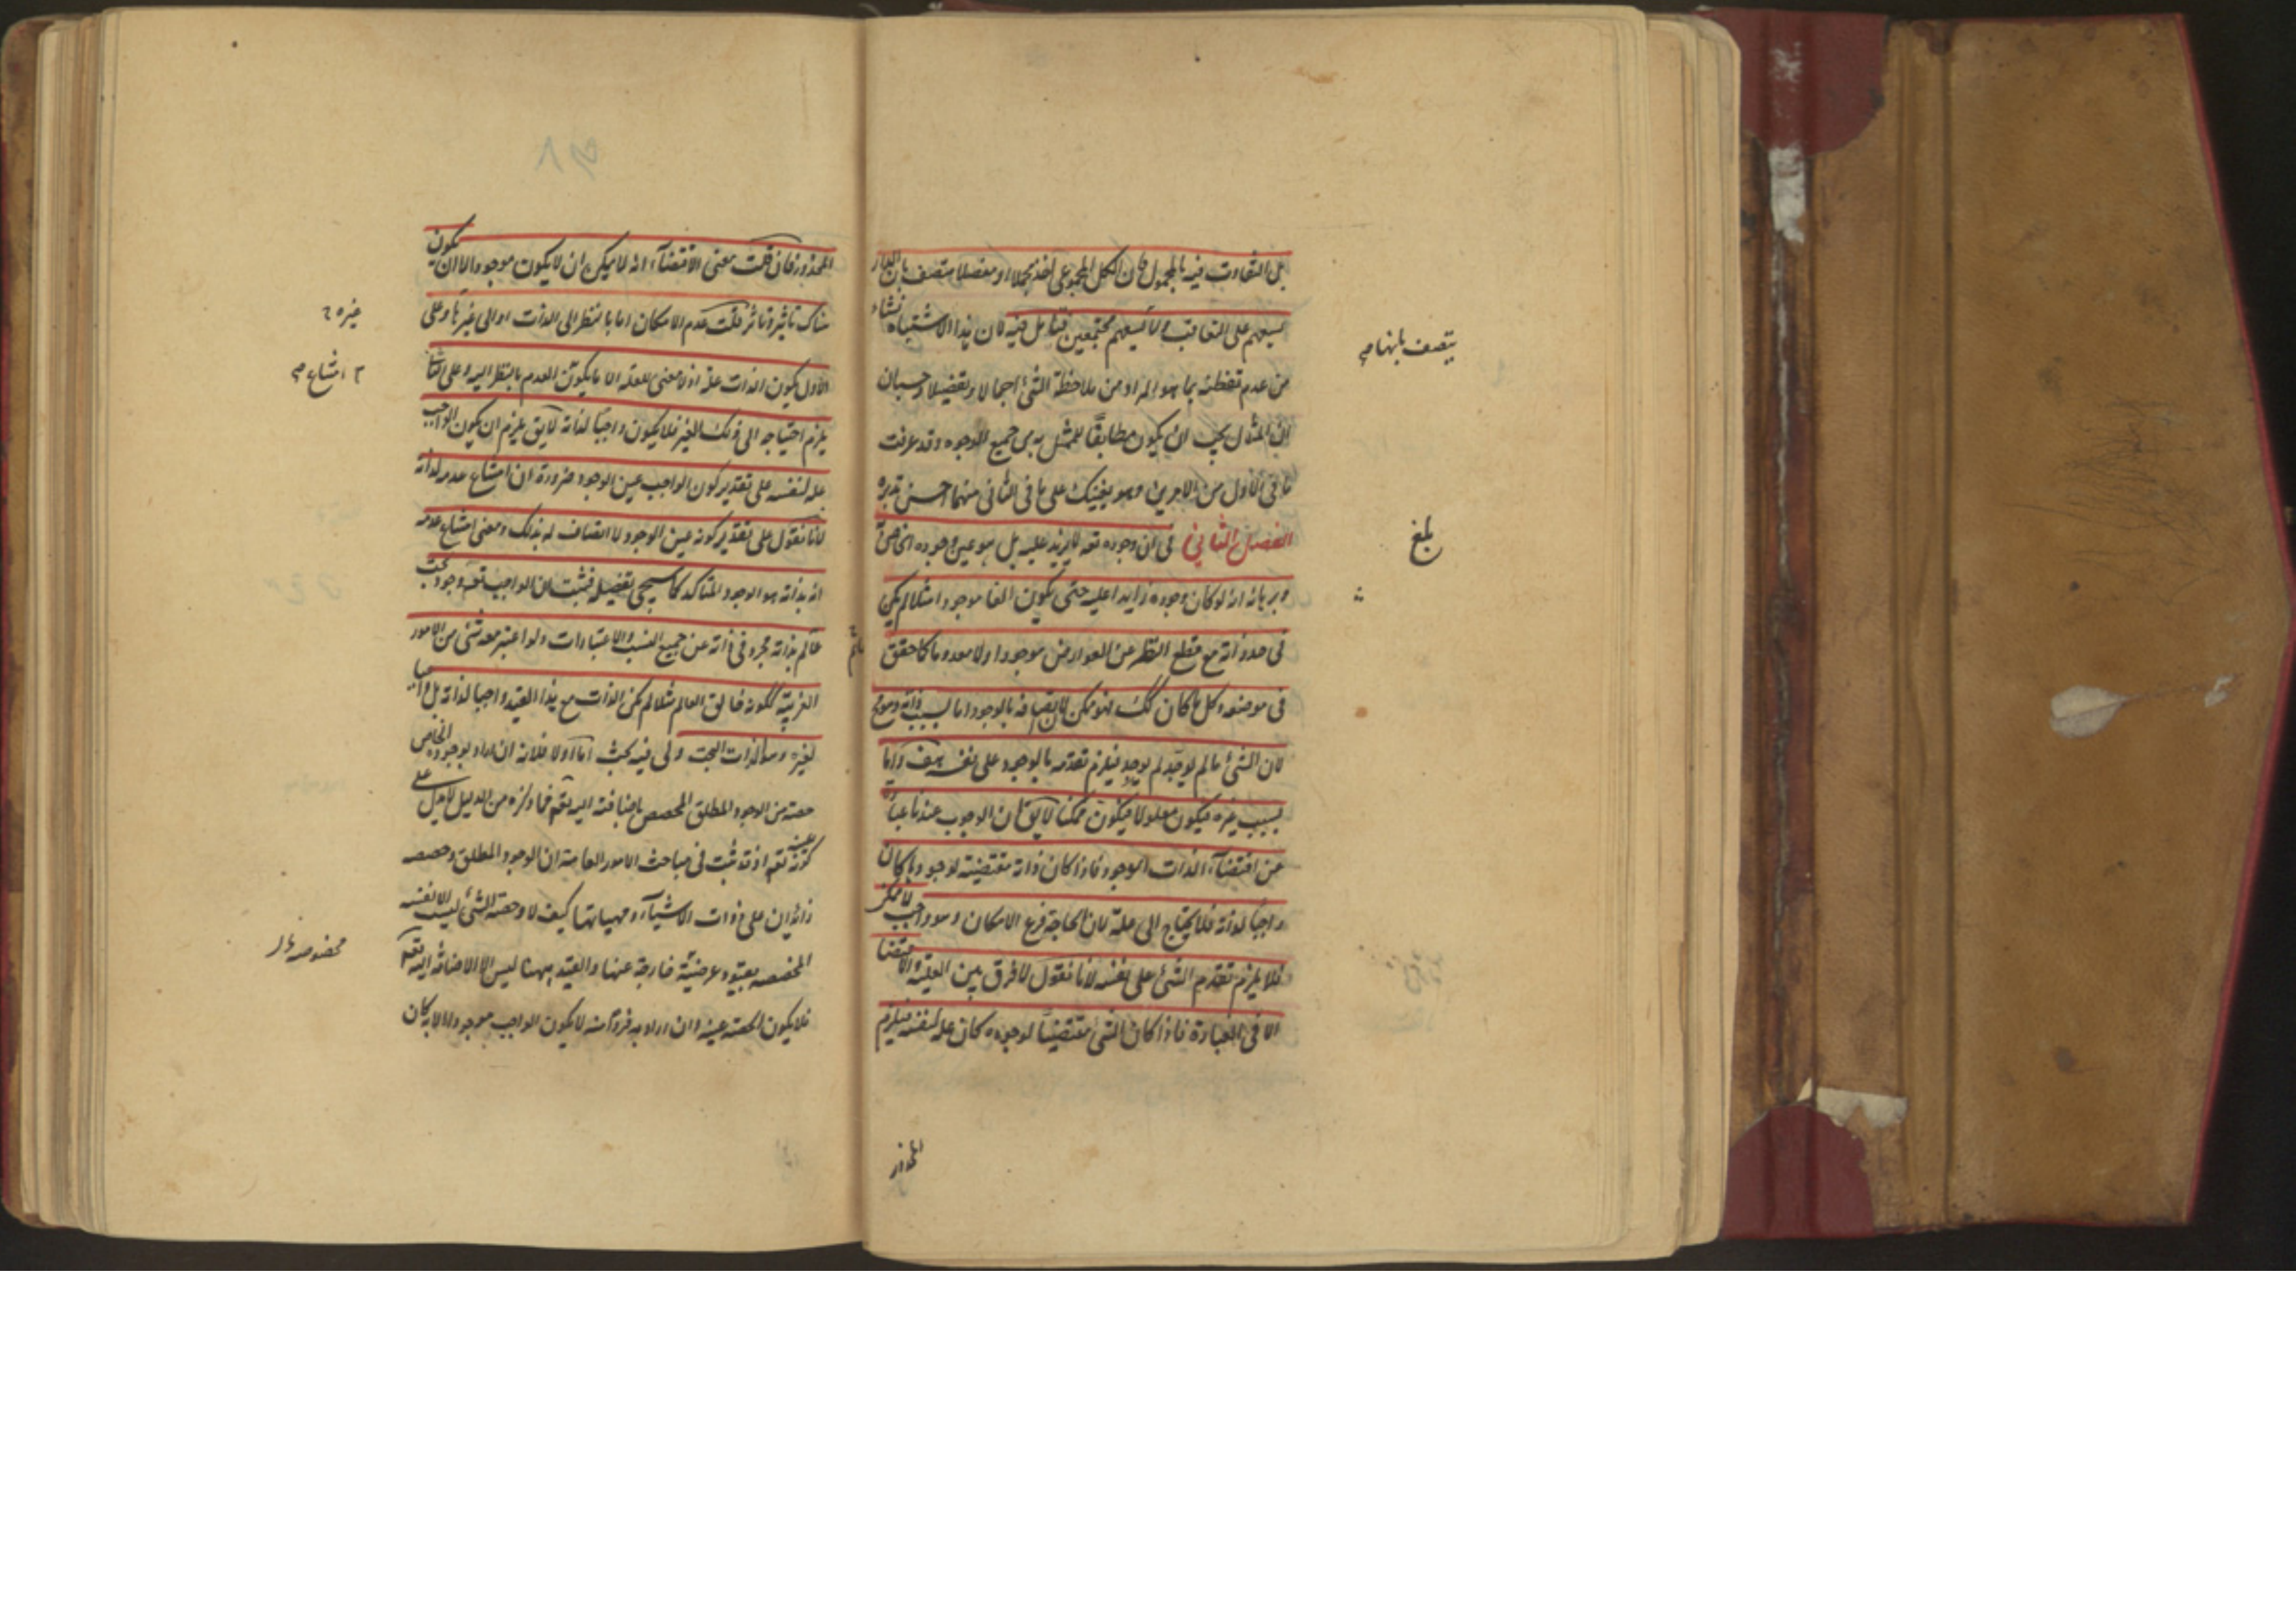 بل التفاوت فيه بالمجهول فان الكل المجموعى اخذ مجملا او مفصلا متصف بان الدار
يسعهم على التعاقب ولا يسعهم مجتمعين فتامل فيه لان هذا الاشتباه نشاء
من عدم تفطنه بما هو المراد من ملاحظة الشئ اجمالا وتفصيلا وحسبان
ان المثال يجب ان يكون مطابقا للممثل به من جميع الوجوه وقد عرفت
ما فى الاول من الاجرين وهو يغنيك على ما فى الثانى منهما احسن تدبره
الفصل الثانى فى ان وجوده تعه لا يزيد عليه بل هو عين وجوده الخاص
وبرهانه انه لو كان وجوده زايدا عليه حتى يكون الفا موجودا مثلا لم يكن
فى حد ذاته مع قطع النظر عن العوارض موجودا ولا معدوما كما حقق
فى موضعه وكل ما كان كك فهو ممكن لان اتصافه بالوجود اما لسبب ذاته وهو مح
لان الشئ ما لم يوجد لم يوجد فيلزم تقدمه بالوجود على نفسه هف واما
بسبب غيره فيكون معلولا فيكون ممكنا لا يق ان الوجوب عندنا عبارة
عن اقتضآء الذات الوجود فاذا كان ذاته مقتضية لوجوده كان
واجبا لذاته فلا يحتاج الى علة لان الحاجة فرع الامكان وهو واجب لا ممكن
فلا يلزم تقدم الشئ على نفسه لانا نقول لا فرق بين العلية والاقتضا
الا فى العبارة فاذا كان الشئ مقتضيا لوجوده كان علة لنفسه فيلزم
المحذور
يتصف بانها
بلغ
المحذور فان قلت معنى الاقتضآء انه لا يمكن ان لا يكون موجودا لا ان يكون
هناك تاثير وتاثر قلت عدم الامكان اما بالنظر الى الذات او الى غيرها وعلى
الاول يكون الذات علة اذ لا معنى للعلة الا ما يكون العدم بالنظر اليه وعلى الثانى
يلزم احتياجه الى ذلك الغير فلا يكون واجبا لذاته لا يق يلزم ان يكون الواجب
علة لنفسه على تقدير كون الواجب عين الوجود ضرورة ان امتناع عدمه لذاته
لانا نقول على تقدير كونه عين الوجود لا اتصاف له بذلك ومعنى امتناع عدمه
انه بذاته هو الوجود المتاكد كما سيجى تفصيله فثبت ان الواجب تعه وجود بحت
قائم بذاته مجرد فى ذاته عن جميع النسب والاعتبارات ولو اعتبر معه شئ من الامور
الغريبة ككونه خالق العالم مثلا لم يكن الذات مع هذا القيد واجبا لذاته بل واجبا
لغيره وسالذات البحت ولى فيه بحث اما اولا فلانه ان اراد بوجوده الخاص
حصته من الوجود المطلق المحصص باضافته اليه تعه فما ذكره من الدليل لا يدل على
كونه عينه تعه اذ قد ثبت فى مباحث الامور العامة ان الوجود المطلق وحصصه
زائدان على ذوات الاشيآء ومهياتها كيف لا وحصة الشئ ليست الا نفسه
المخصصه بقيود عرضية خارجة عنها والقيد ههنا ليس الا الاضافة اليه تعه
فلا يكون الحصة عينه وان اراد به فردا منه لا يكون الواجب موجودا الا به كان
غيره
امتناع
مخصوصة